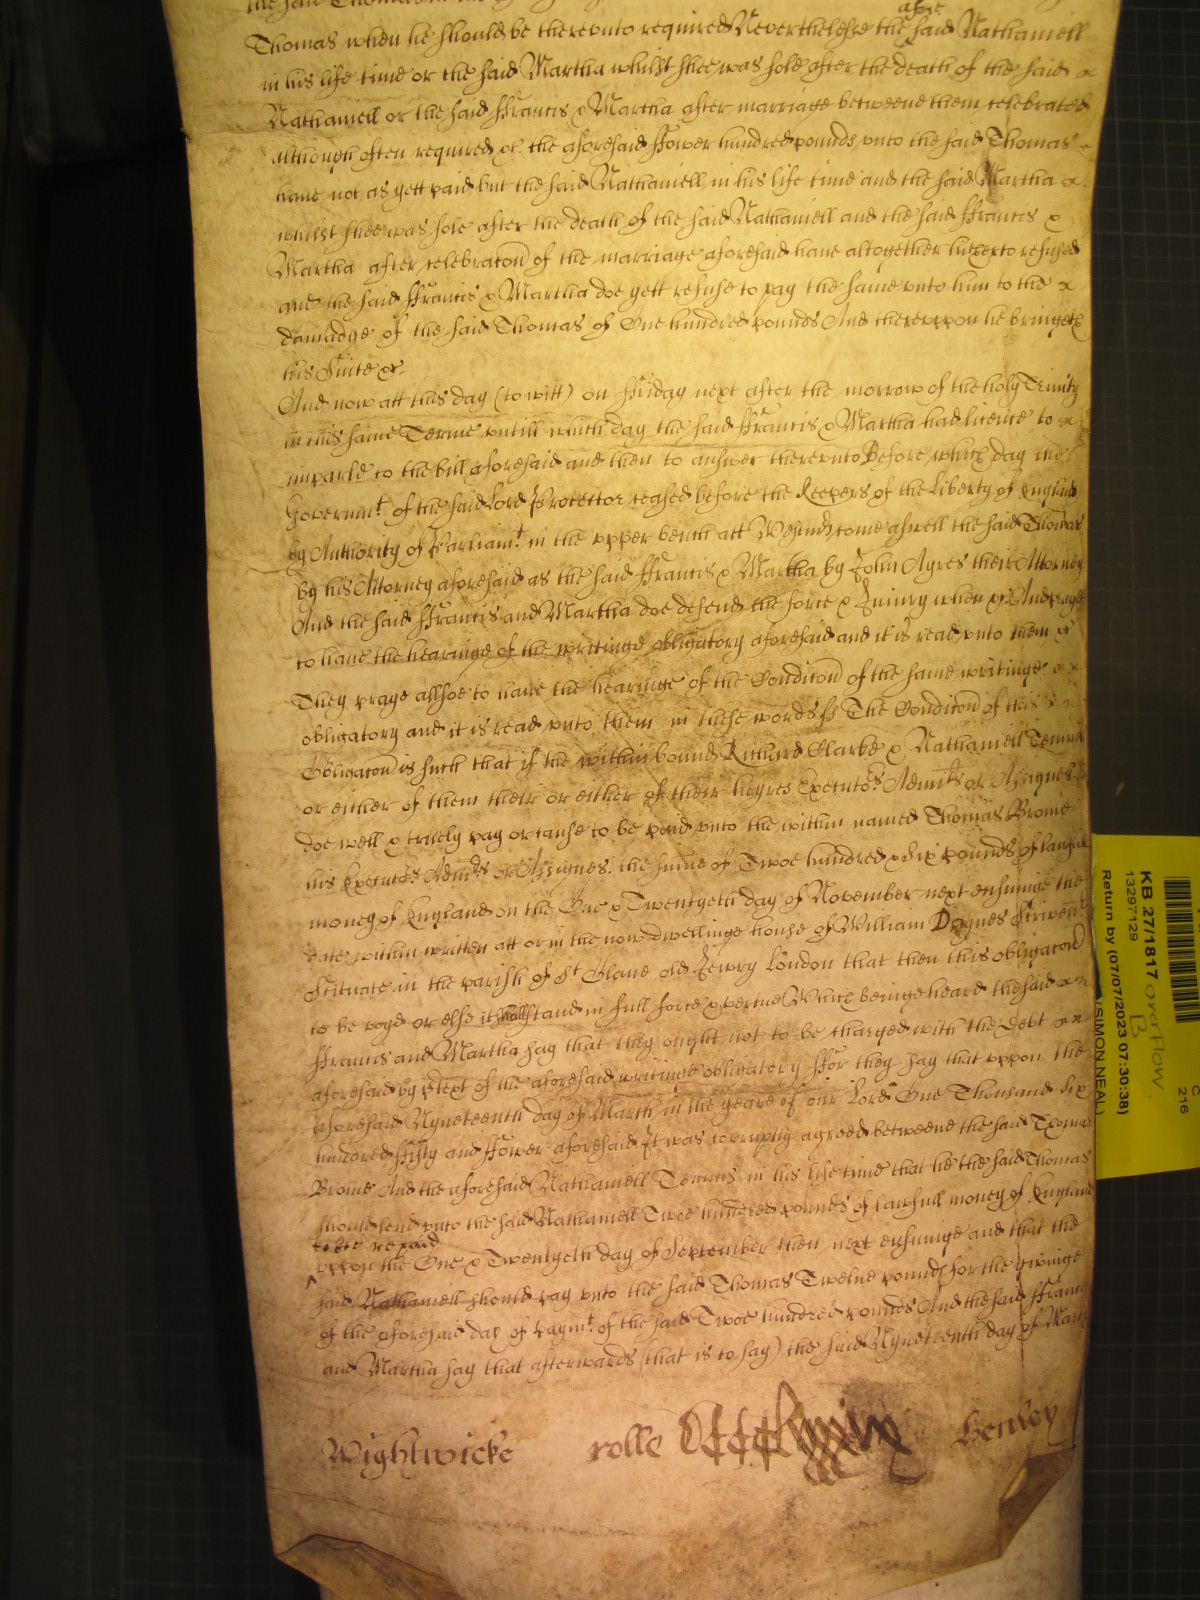 the said Thomas in the said
afore
Thomas when he should be therevnto required Neverthelesse the said Nathaniell
in his life time or the said Martha whilst shee was sole after the death of the said x
Nathaniell or the said ffrancis & Martha after marriage betweene them celebrated
although often required &c. the aforesaid ffower hundred pounds vnto the said Thomas
haue not as yett paid but the said Nathaniell in his life time and the said Martha x
whilst shee was sole after the death of the said Nathaniell and the said ffrancis &
Martha after celebracon of the marriage aforesaid haue altogether hitherto refused
and the said ffrancis & Martha doe yett refuse to pay the same vnto him to the x
damadge of the said Thomas of One hundred pounds And therevppon he bringeth
his Suite &c.
And now att this day (to witt) on ffriday next after the morrow of the holy Trinity
in this same Terme vntill which day the said ffrancis & Martha had licence to x
imparle to the bill aforesaid and then to answer therevnto Before which day the
Governmt. of the said Lord Protector ceased before the Keepers of the Liberty of England
by Authority of Parliamt. in the vpper bench att Westmr. come aswell the said Thomas
by his Attorney aforesaid as the said ffrancis & Martha by John Ayres their Attorney
And the said ffrancis and Martha doe defend the force & Iniury when &c. And praye
to haue the hearinge of the writinge obligatory aforesaid and it is read vnto them &c
They praye allsoe to haue the hearinge of the Condicon of the same writinge x x
obligatory and it is read vnto them in these words ss The Condicon of this
Obligacon is such that if the within bound Richard Clarke & Nathaniell Temms
or either of them their or either of their heyres Executors Admrs or Assignes
doe well & truely pay or cause to be paid vnto the within named Thomas Brome
his Executors Admrs or Assignes the sume of Twoe hundred & six pounds of lawfull
money of England on the One & Twentyeth day of November next ensuinge the
date within written att or in the now dwellinge house of William Daynes Scrivenr.
scituate in the parish of St. Olaue old Jewry London that then this obligacon
to be voyd or else it shall stand in full force & vertue Which beinge heard the said x x
ffrancis and Martha say that they ought not to be charged with the Debt x x
aforesaid by ptext of the aforesaid writinge obligatory ffor they say that vppon the
aforesaid Nyneteenth day of March in the yeare of our Lord One Thousand six
hundred ffifty and ffower aforesaid It was corruptly agreed betweene the said Thomas
Brome And the aforesaid Nathaniell Temms in his life time that he the said Thomas
should lend vnto the said Nathaniell Twoe hundred pounds of lawfull money of England
to be repaid
vppon the One & Twentyeth day of September then next ensuinge and that the
said Nathaniell should pay vnto the said Thomas Twelue pounds for the givinge
of the aforesaid day of paymt. of the said Twoe hundred pounds And the said ffrancis
and Martha say that afterwards (that is to say) the said Nyneteenth day of March
Wightwicke rolle Henley
KB 27/1817 overflow
B
13297129
Return by (07/07/2023 07:30:38)
(SIMON NEAL)
C
216